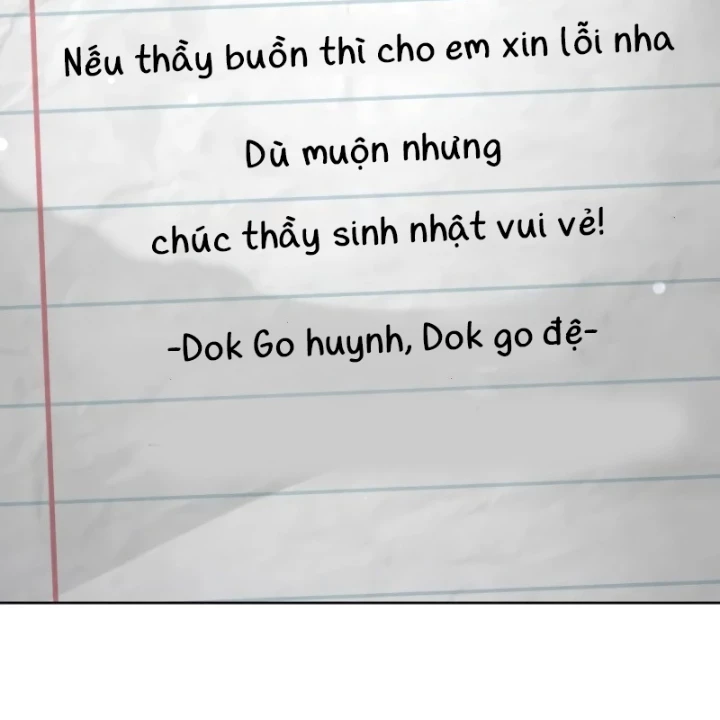 Nếu thầy buồn thì cho em xin lỗi nha
Dù muộn nhưng
chúc thầy sinh nhật vui vẻ!
-Dok Go huynh, Dok go đệ-